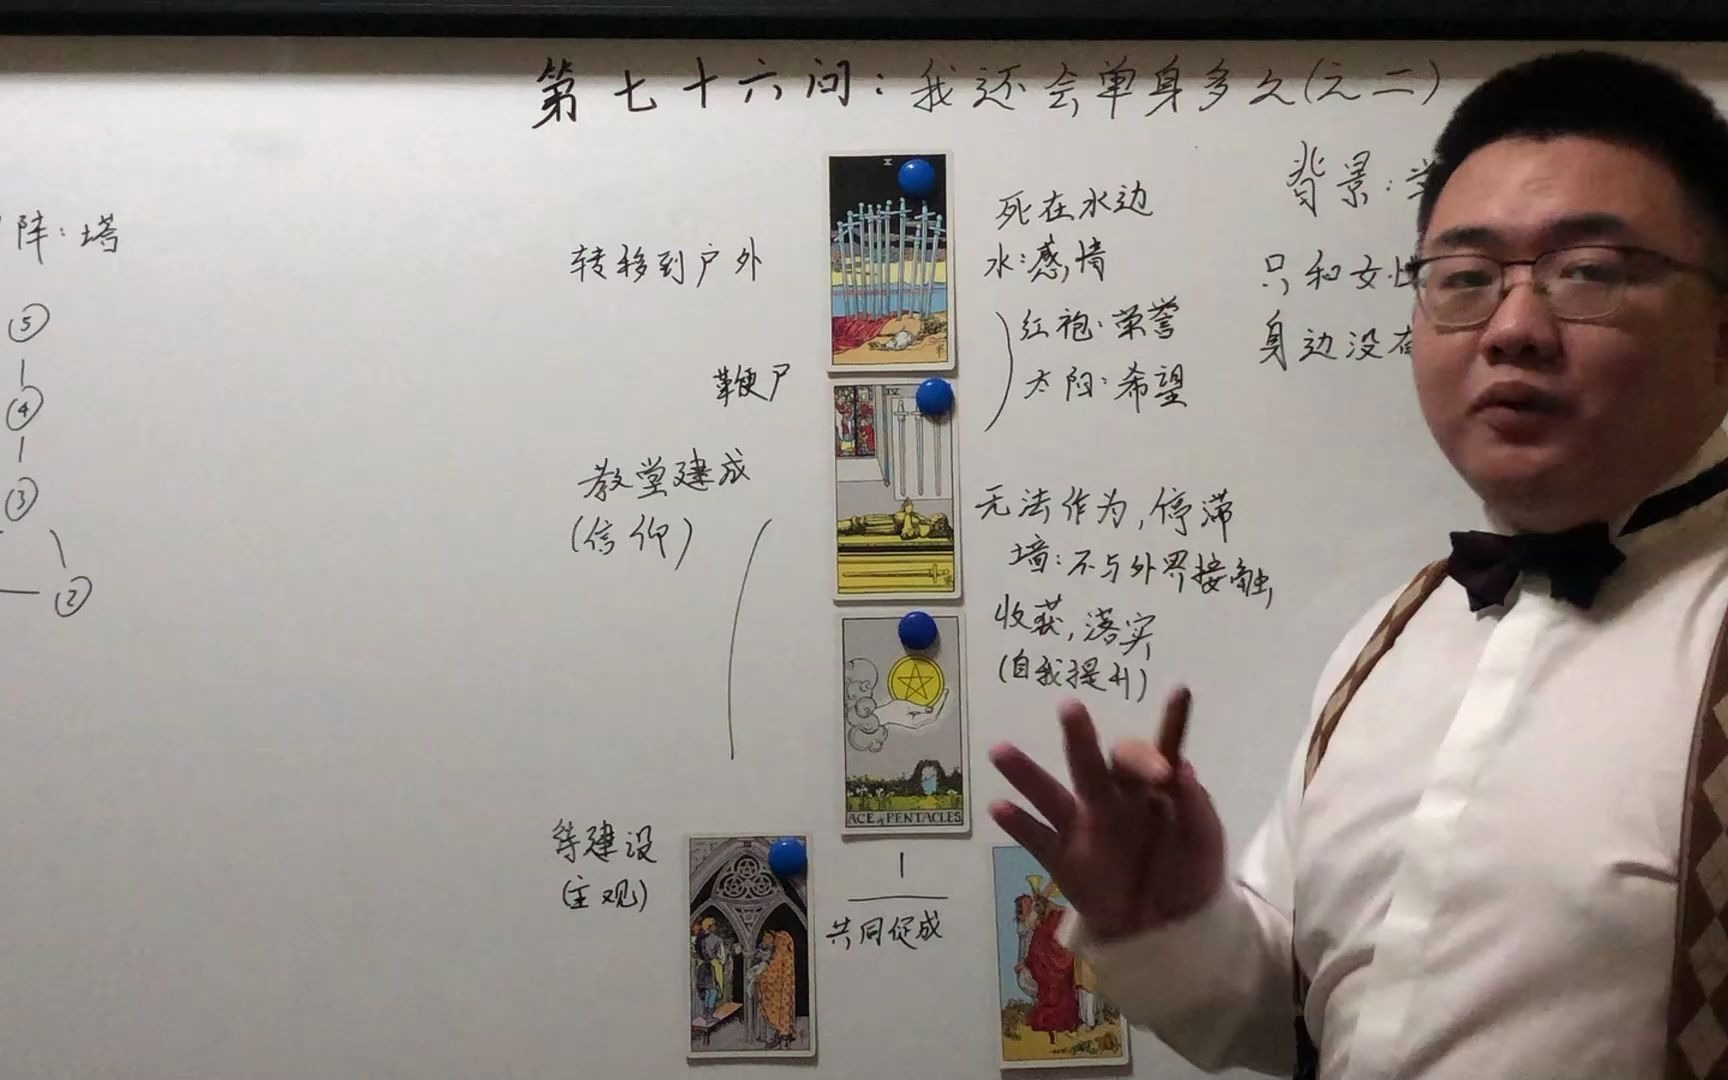 第七十六问：我还会单身多久(之二)
阵：塔
⑤
④
③
②
转移到户外
鞭尸
教堂建成
(信仰)
待建设
(主观)
X
IV
ACE of PENTACLES
共同促成
死在水边
水：感情
红袍：荣誉
太阳：希望
无法作为，停滞
墙：不与外界接触
收获，落实
(自我提升)
背景：
只和女性
身边没有